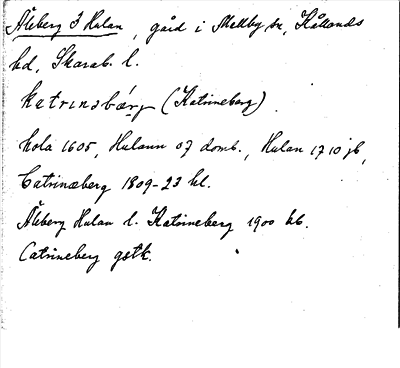 Åkeberg 3 Hulan, gård i Mellby sn, Kållands
hd, Skarab. l.
katrinsbærg (Katrineberg)
hola 1605, Hulann 07 domb., Hulan 1710 jb,
Catrinæberg 1809-23 hl.
Åkeberg Hulan l. Katrineberg 1900 kb.
Catrineberg gstk.